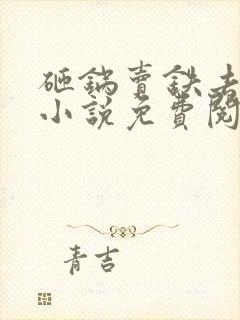 砸鍋賣鉄去
小說免費閱
青吉